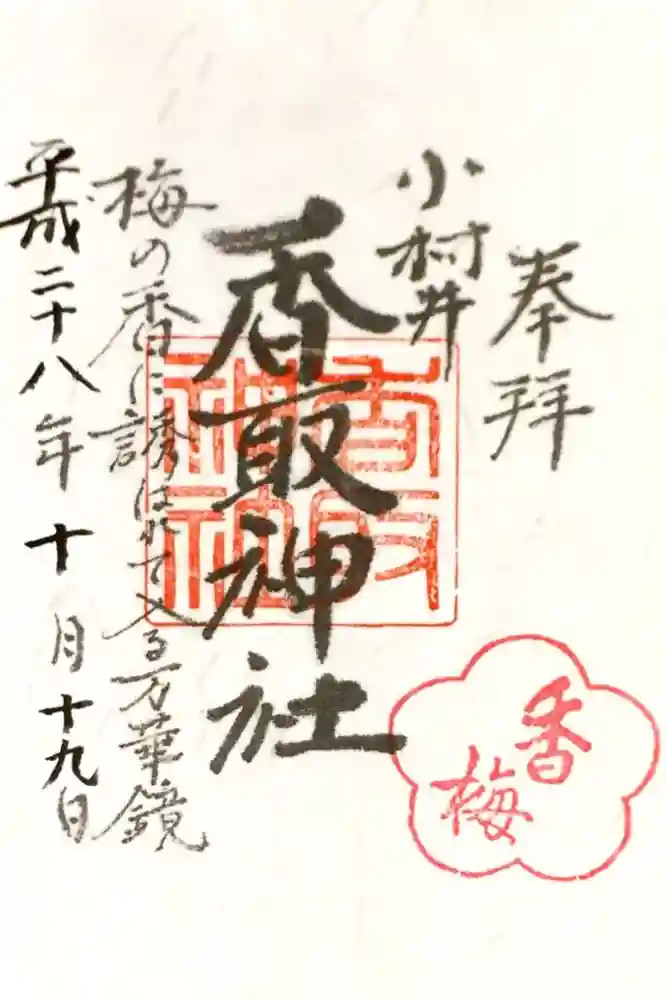 奉拝
小村井
香取神社
香取神社
梅の香に誘はれて入る万華鏡
平成二十八年十月十九日
香梅